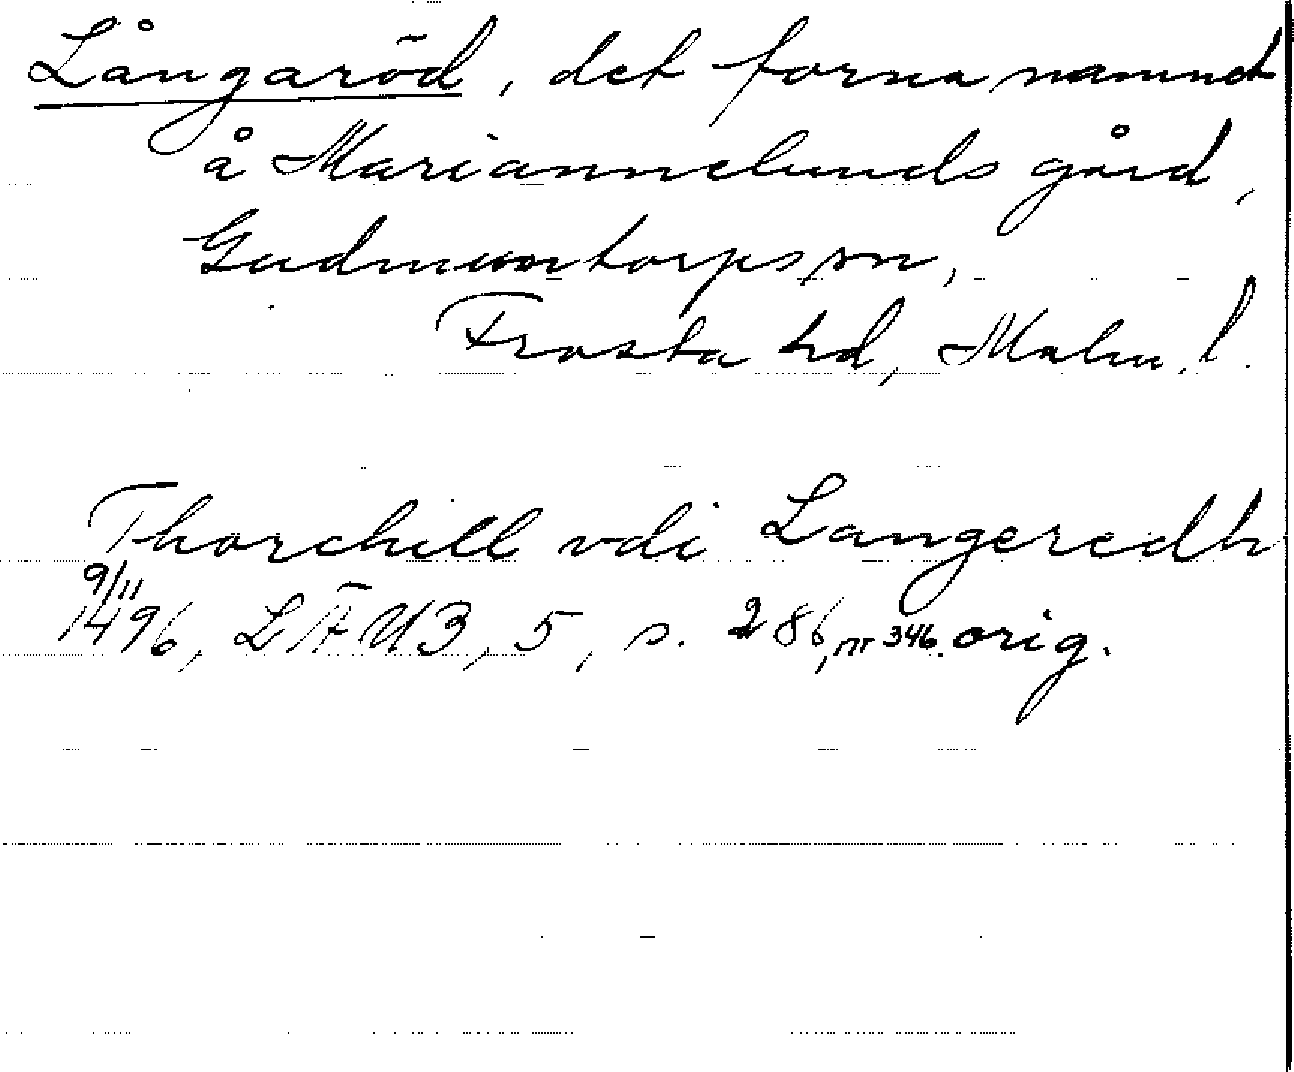 Långaröd, det forna namnet
å Mariannelunds gård,
Gudmuntorps sn,
Frosta hd, Malm. l.
Thorchill vdi Langeredh
9/11
1496, LÄUB, 5, s. 286, nr 346. orig.